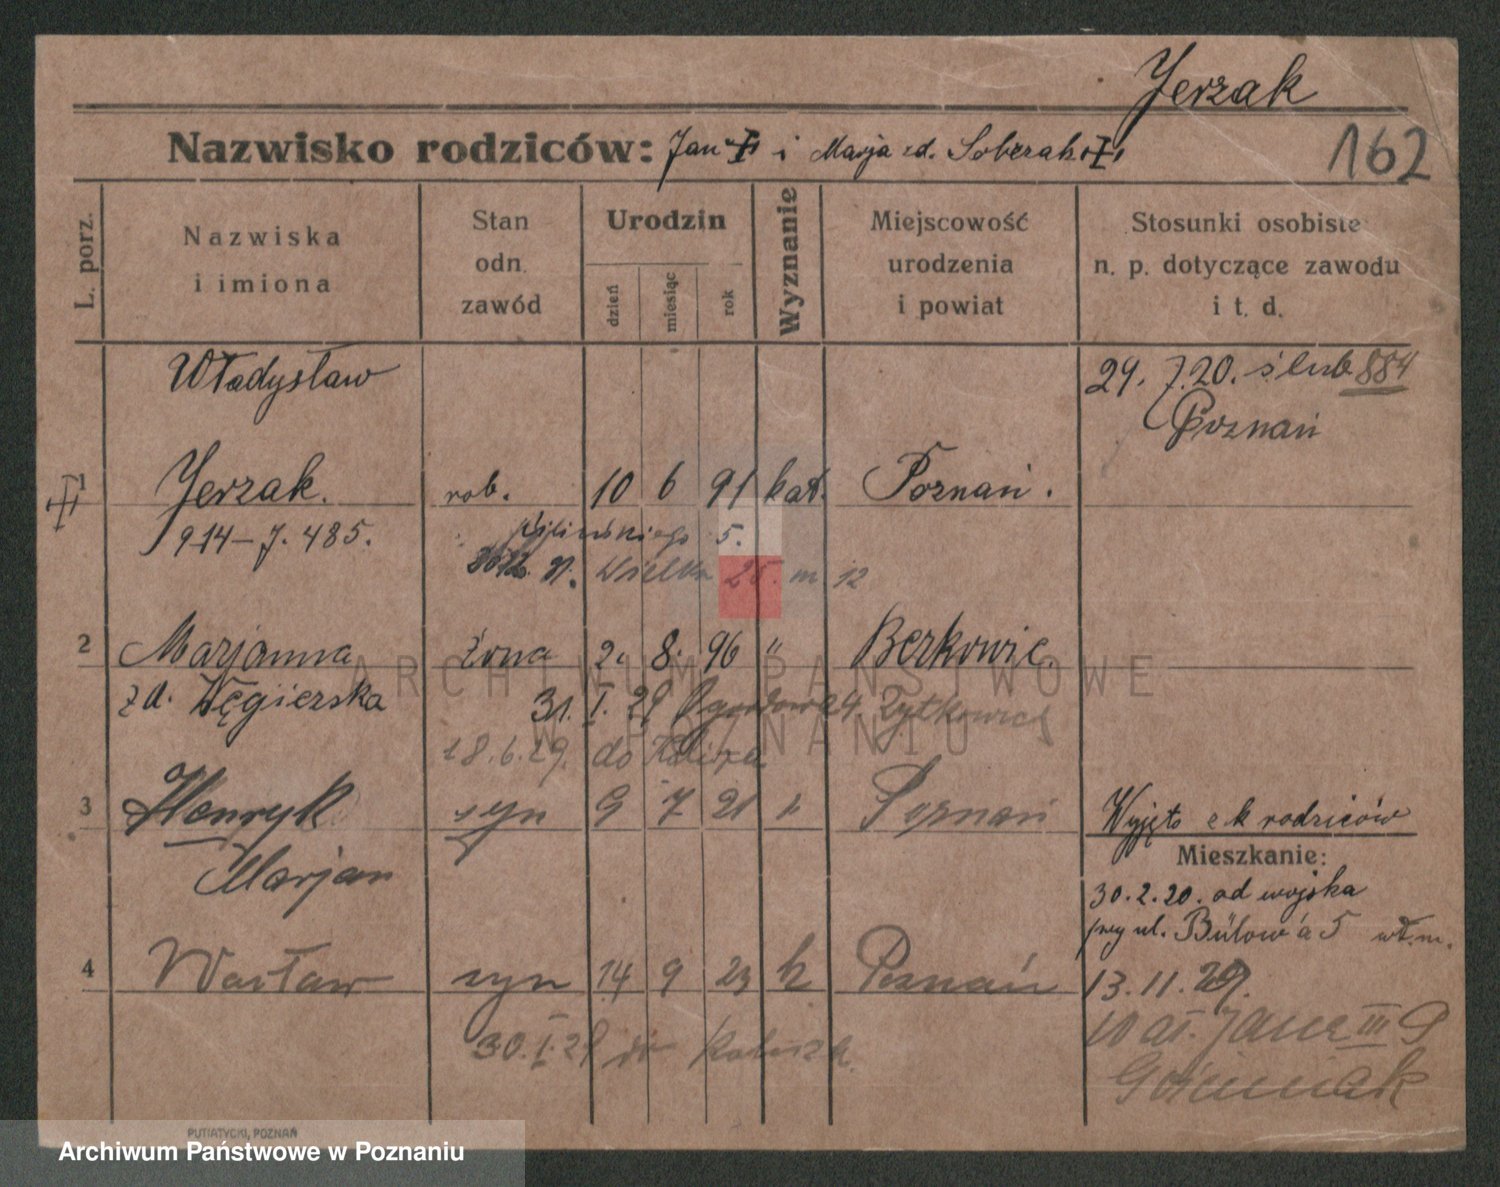 Jerzak
162
Nazwisko rodziców: Jan i Marja zd. Soberak
L. porz.
Nazwiska i imiona
Stan odn. zawód
Urodzin
dzień
miesiąc
rok
Wyznanie
Miejscowość urodzenia i powiat
Stosunki osobiste n. p. dotyczące zawodu i t. d.
Władysław
29. 7.20. ślub 884
Poznań
1 Jerzak. rob. 10 6 91 kat. Poznań.
914-7.485.
5.
Wielka 25. m 12
2 Marjanna żona 2. 8. 96 " Berkowic
zd. Węgierska 31. I. 29 Ogrodowa 24
18.6.29. do
3 Henryk syn 9 7 21 " Poznań
Wyjęto z k rodziców
Marjan
Mieszkanie:
30.2.20. od wojska
przy ul. Bülow'a 5 wł.m.
4 Wacław syn 14 9 23 k Poznań
13.11.
30. I. 29 do
Jana III 9
ARCHIWUM PAŃSTWOWE
W POZNANIU
PUTIATYCKI, POZNAŃ
Archiwum Państwowe w Poznaniu